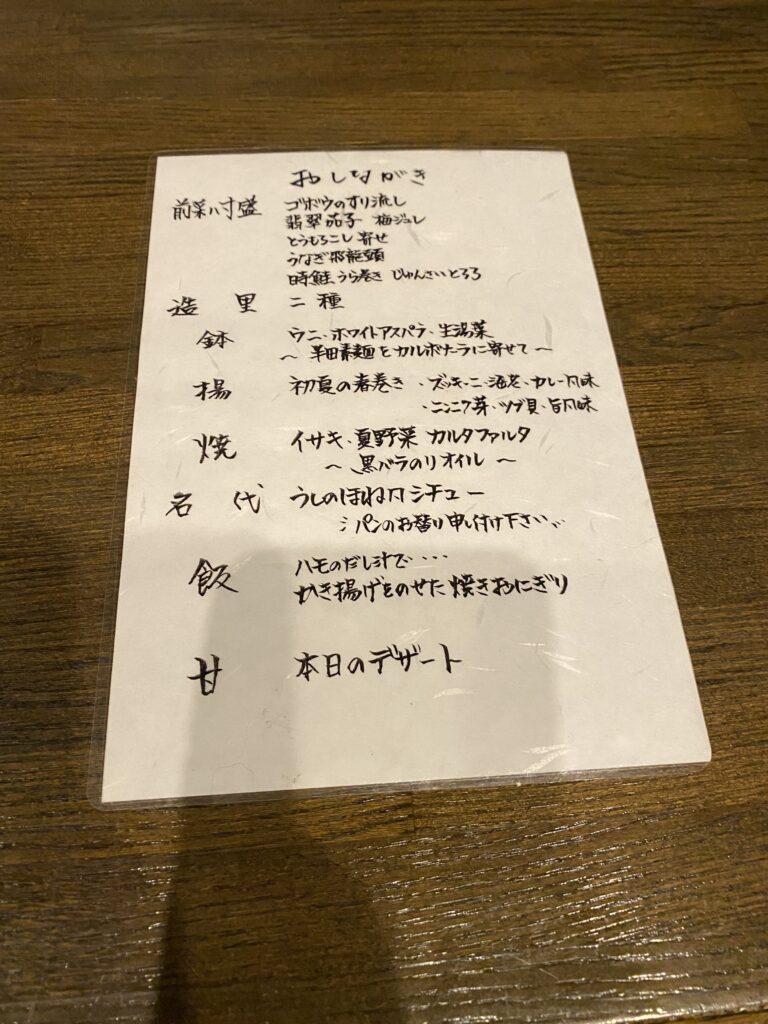 おしながき
前菜八寸盛 ゴボウのすり流し
翡翠茄子 梅ジュレ
とうもろこし寄せ
うなぎ飛龍頭
時鮭うら巻き じゅんさいとろろ
造里 二種
鉢 ウニ・ホワイトアスパラ・生湯葉
～ 半田素麺をカルボナーラに寄せて ～
揚 初夏の春巻き ・ズッキーニ・海老・カレー風味
・ニンニク芽・ツブ貝・旨風味
焼 イサキ・夏野菜 カルタファルタ
～ 黒バラのりオイル ～
名代 うしのほね风シチュー
パンのお替り申し付け下さい
飯 ハモのだし汁で・・・
かき揚げをのせた焼きおにぎり
甘 本日のデザート